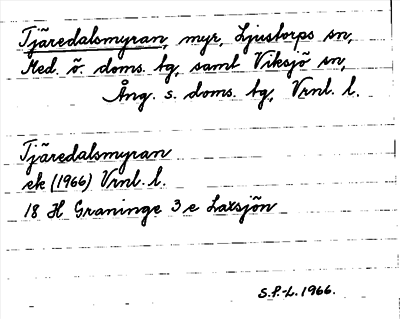 Tjäredalsmyran, myr, Ljustorps sn,
Med. ö. doms. bg, samt Viksjö sn,
Ång. s. doms. bg, Vrnl. l.
Tjäredalsmyran
ek (1966) Vrnl. l.
18 H Graninge 3 e Laxsjön
S.P.-L. 1966.